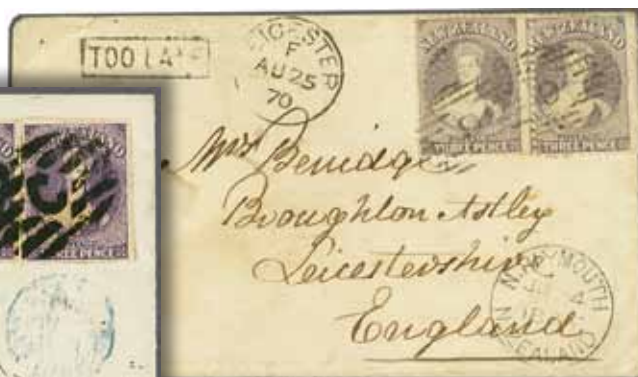 TOO LATE
LEICESTER
F
AU 25
70
NEW ZEALAND
THREE PENCE
NEW ZEALAND
THREE PENCE
Mrs Berridge
Broughton Astley
Leicestershire
England
PLYMOUTH
ZEALAND
THREE PENCE